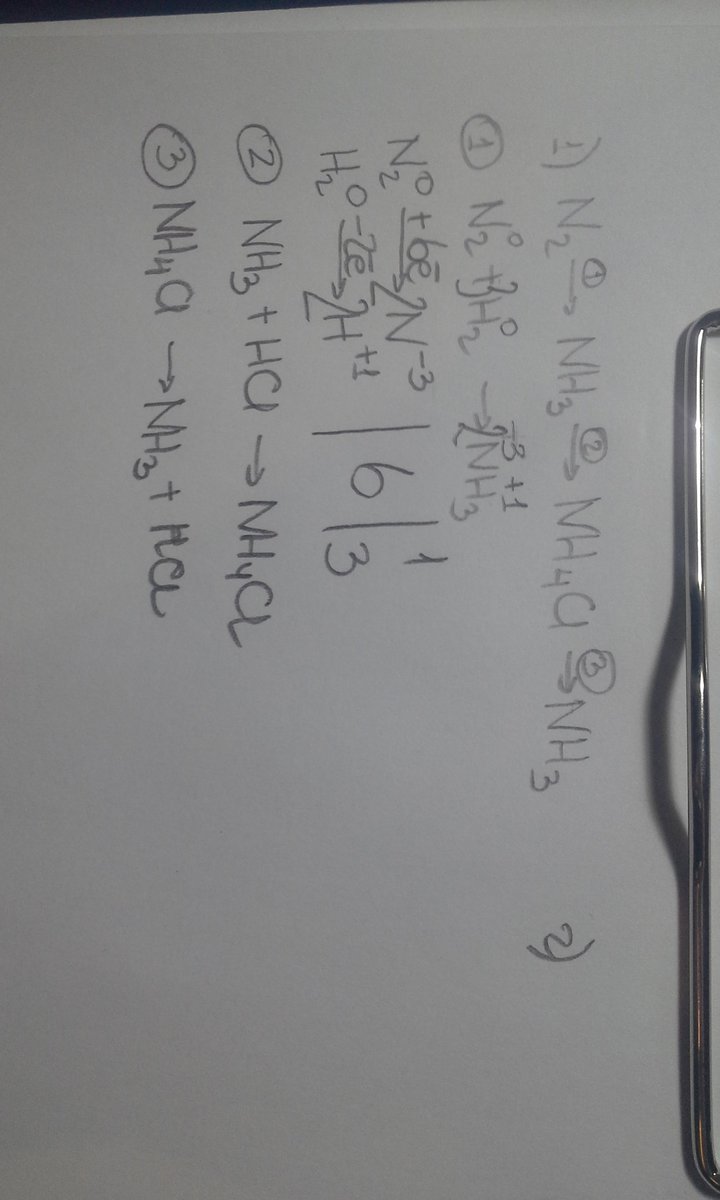 1) N₂ →① NH₃ →② NH₄Cl →③ NH₃
① N₂⁰ + 3H₂⁰ → 2N⁻³H₃⁺¹
N₂⁰ +6ē → 2N⁻³ | 6 | 1
H₂⁰ -2ē → 2H⁺¹ | | 3
② NH₃ + HCl → NH₄Cl
③ NH₄Cl → NH₃ + HCl
2)